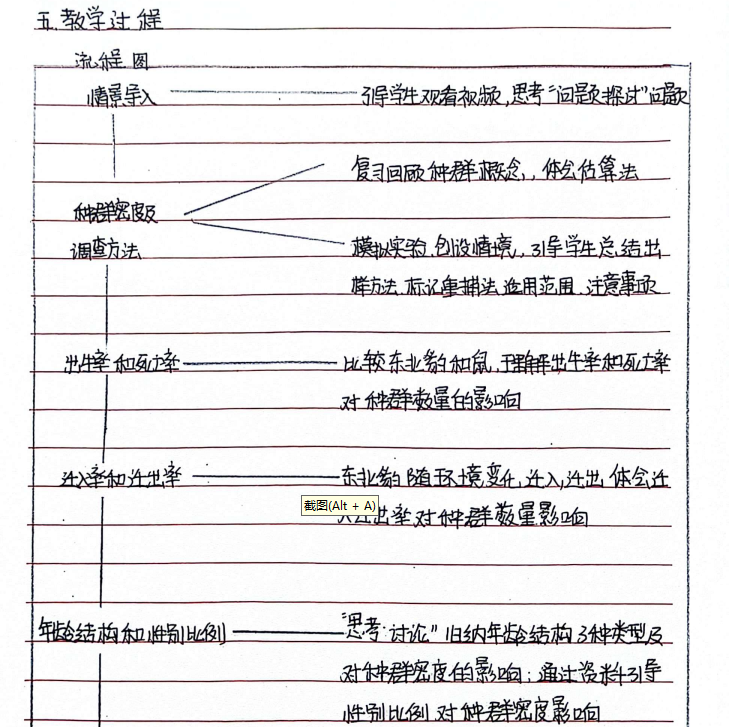 五.教学过程
流程图
情景导入
引导学生观看视频,思考"问题探讨"问题
复习回顾种群概念,,体会估算法
种群密度及
调查方法
模拟实验,创设情境,引导学生总结出
样方法、标记重捕法、适用范围、注意事项
出生率和死亡率
比较东北豹和鼠,理解出生率和死亡率
对种群数量的影响
迁入率和迁出率
东北豹随环境变化,迁入,迁出,体会迁
截图(Alt + A)
出率对种群数量影响
年龄结构和性别比例
"思考·讨论"归纳年龄结构3种类型及
对种群密度的影响;通过资料引导
性别比例对种群密度影响